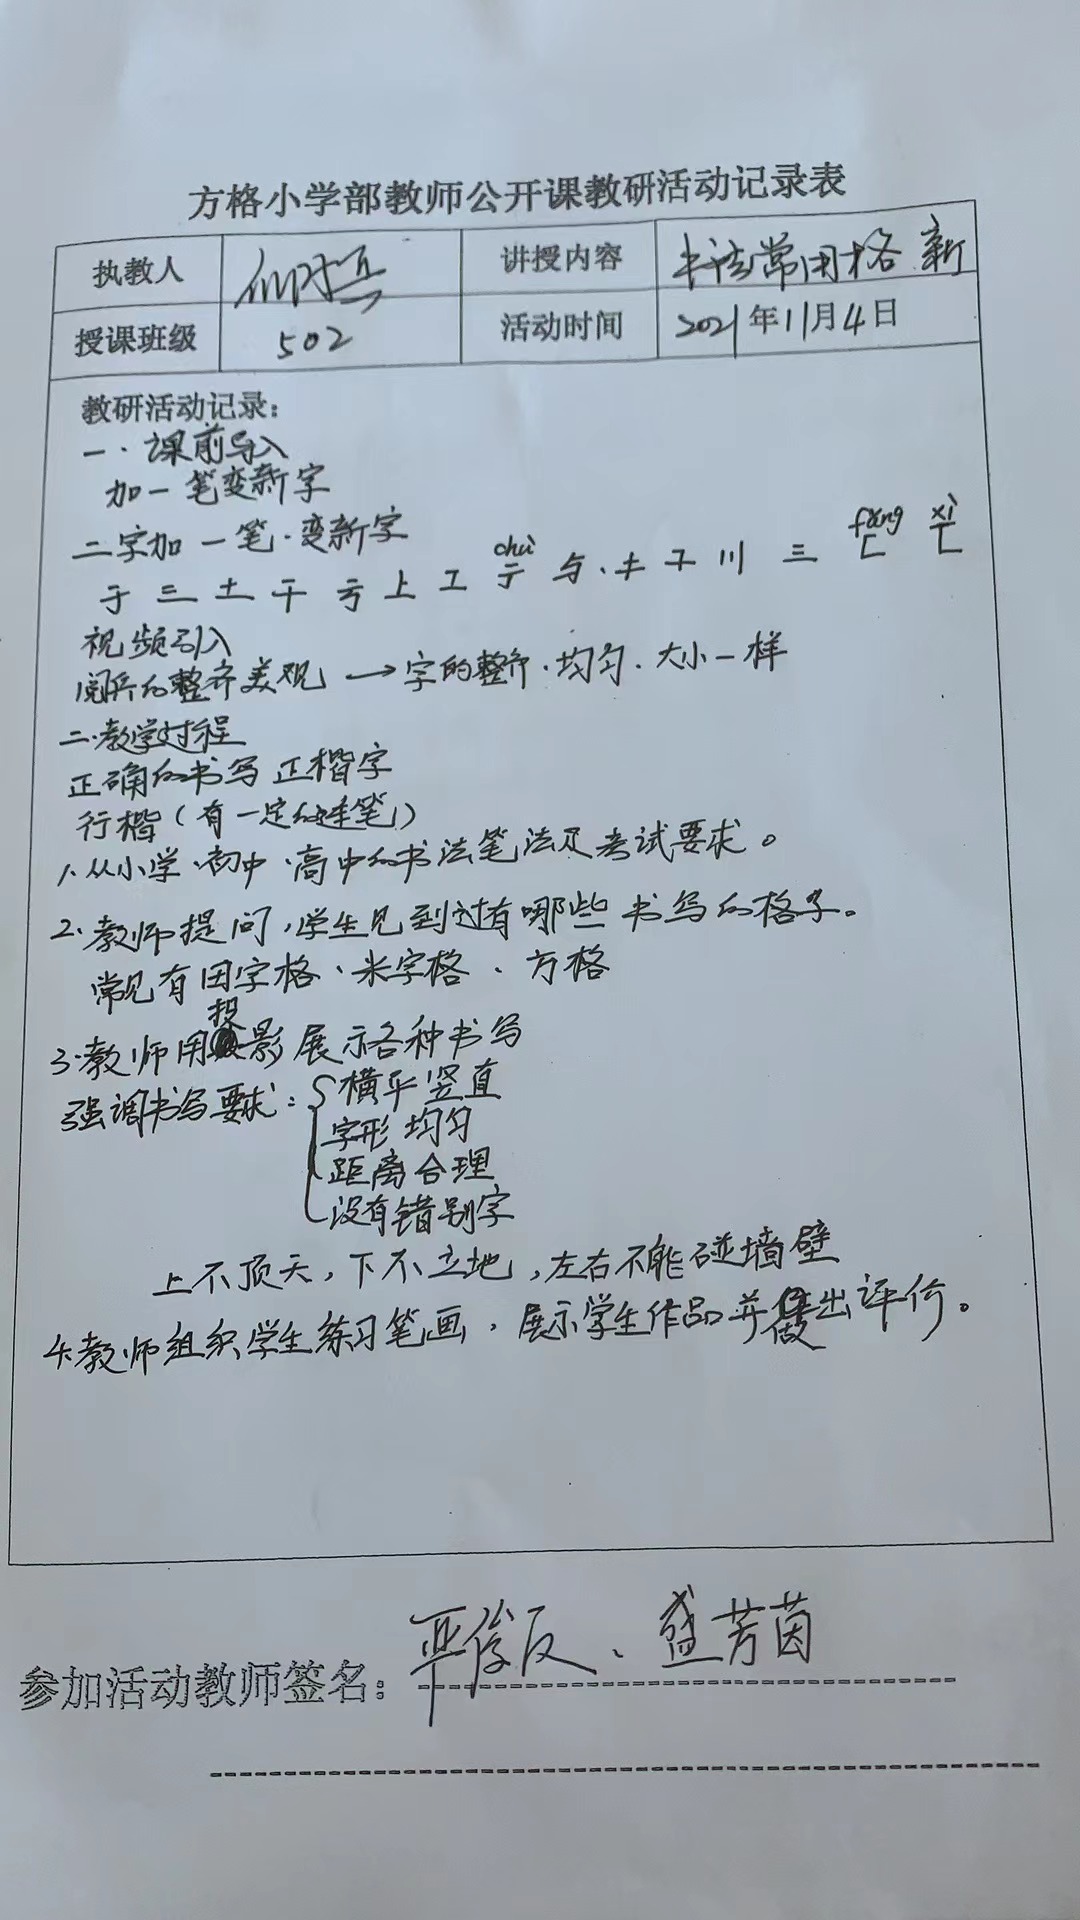 方格小学部教师公开课教研活动记录表
执教人 讲授内容 书法常用格 新
授课班级 502 活动时间 2021年11月4日
教研活动记录：
一．课前导入
加一笔变新字
二字加一笔．变新字
chù fāng xì
于 三 土 干 亏 上 工 亍 与．丰 子 川 三 匚 匸
视频引入
阅兵的整齐美观 → 字的整齐．均匀．大小一样
二．教学过程
正确的书写 正楷字
行楷（有一定的连笔）
1．从小学．初中．高中的书法笔法及考试要求。
2．教师提问，学生见到过有哪些书写的格子。
常见有田字格、米字格、方格
投
3．教师用影展示各种书写
强调书写要求：横平竖直
字形均匀
距离合理
没有错别字
上不顶天，下不立地，左右不能碰墙壁
4．教师组织学生练习笔画，展示学生作品并做出评价。
参加活动教师签名： 严俊反、盛芳茵